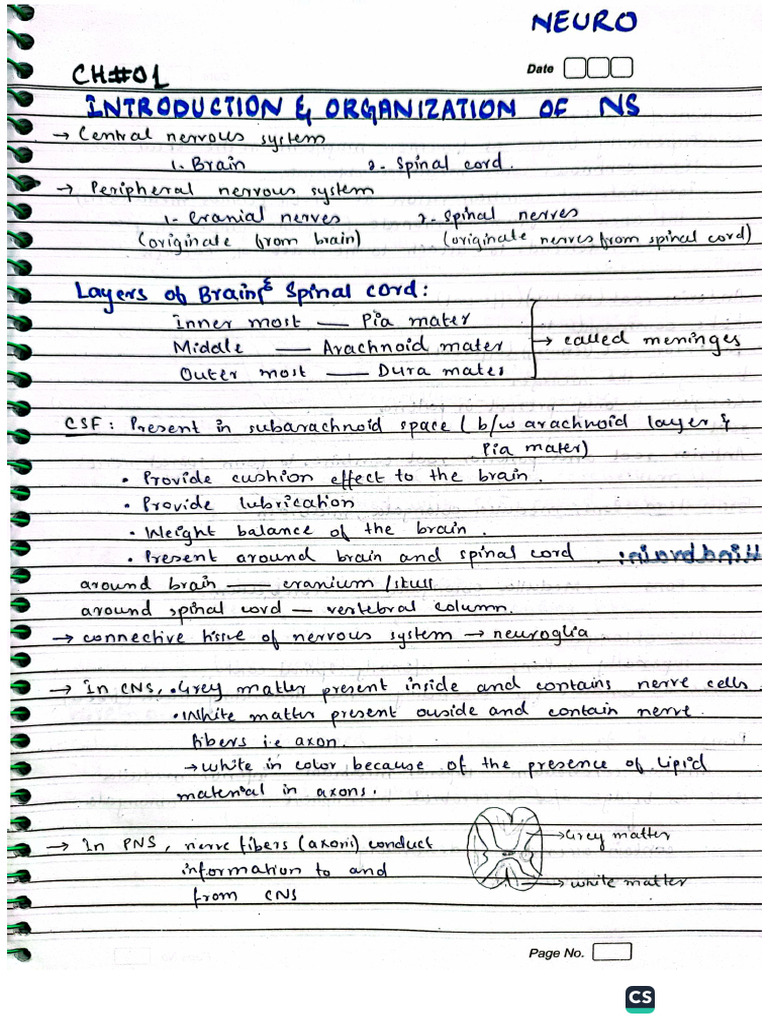 NEURO
Date
CH#01
INTRODUCTION & ORGANIZATION OF NS
→ Central nervous system
1. Brain 2. Spinal cord.
→ Peripheral nervous system
1- Cranial nerves 2- Spinal nerves
(originate from brain) (originate nerves from spinal cord)
Layers of Brain & Spinal cord:
Inner most — Pia mater
Middle — Arachnoid mater → called meninges
Outer most — Dura mater
CSF: Present in subarachnoid space (b/w arachnoid layer &
Pia mater)
• Provide cushion effect to the brain.
• Provide lubrication
• Weight balance of the brain.
• Present around brain and spinal cord.
around brain — cranium/skull
around spinal cord — vertebral column.
→ connective tissue of nervous system → neuroglia
→ In CNS, • Grey matter present inside and contains nerve cells.
• White matter present ouside and contain nerve
fibers i.e axon.
→ white in color because of the presence of lipid
material in axons.
→ In PNS, nerve fibers (axons) conduct
information to and
from CNS
→ Grey matter
→ white matter
Page No.
CS